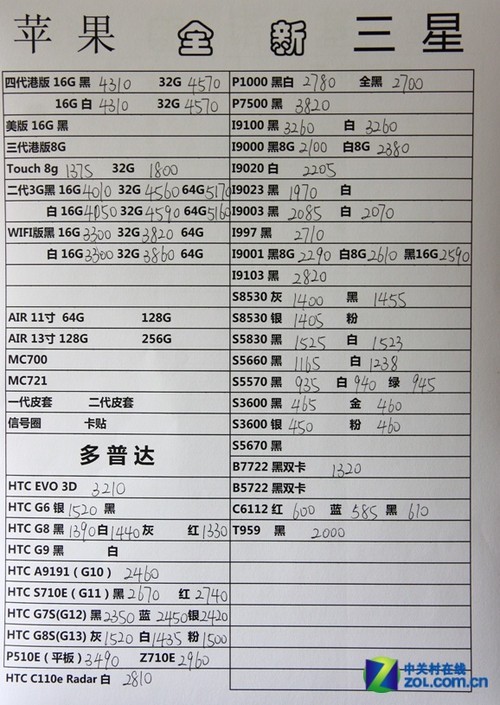 苹果 全新 三星
四代港版 16G 黑 4310 32G 4570
16G 白 4310 32G 4570
美版 16G 黑
三代港版8G
Touch 8g 1375 32G 1800
二代3G黑 16G 4010 32G 4560 64G 5170
白 16G 4050 32G 4590 64G 5160
WIFI版黑 16G 3300 32G 3820 64G
白 16G 3300 32G 3860 64G
AIR 11寸 64G 128G
AIR 13寸 128G 256G
MC700
MC721
一代皮套 二代皮套
信号圈 卡贴
多普达
HTC EVO 3D 3210
HTC G6 银 1520 黑
HTC G8 黑 1390 白 1440 灰 红 1330
HTC G9 黑 白
HTC A9191 (G10) 2460
HTC S710E (G11) 黑 2670 红 2740
HTC G7S(G12) 黑 2350 蓝 2450 银 2420
HTC G8S(G13) 灰 1520 白 1435 粉 1500
P510E (平板) 3490 Z710E 2960
HTC C110e Radar 白 2810
P1000 黑白 2780 全黑 2700
P7500 黑 3820
I9100 黑 3260 白 3260
I9000 黑8G 2100 白8G 2380
I9020 白 2205
I9023 黑 1970 白
I9003 黑 2085 白 2070
I997 黑 2710
I9001 黑8G 2290 白8G 2610 黑16G 2590
I9103 黑 2820
S8530 灰 1400 黑 1455
S8530 银 1405 粉
S5830 黑 1525 白 1523
S5660 黑 1165 白 1238
S5570 黑 935 白 940 绿 945
S3600 黑 465 金 460
S3600 银 450 粉 460
S5670 黑
B7722 黑双卡 1320
B5722 黑双卡
C6112 红 600 蓝 585 黑 610
T959 黑 2000
中关村在线
ZOL.COM.CN